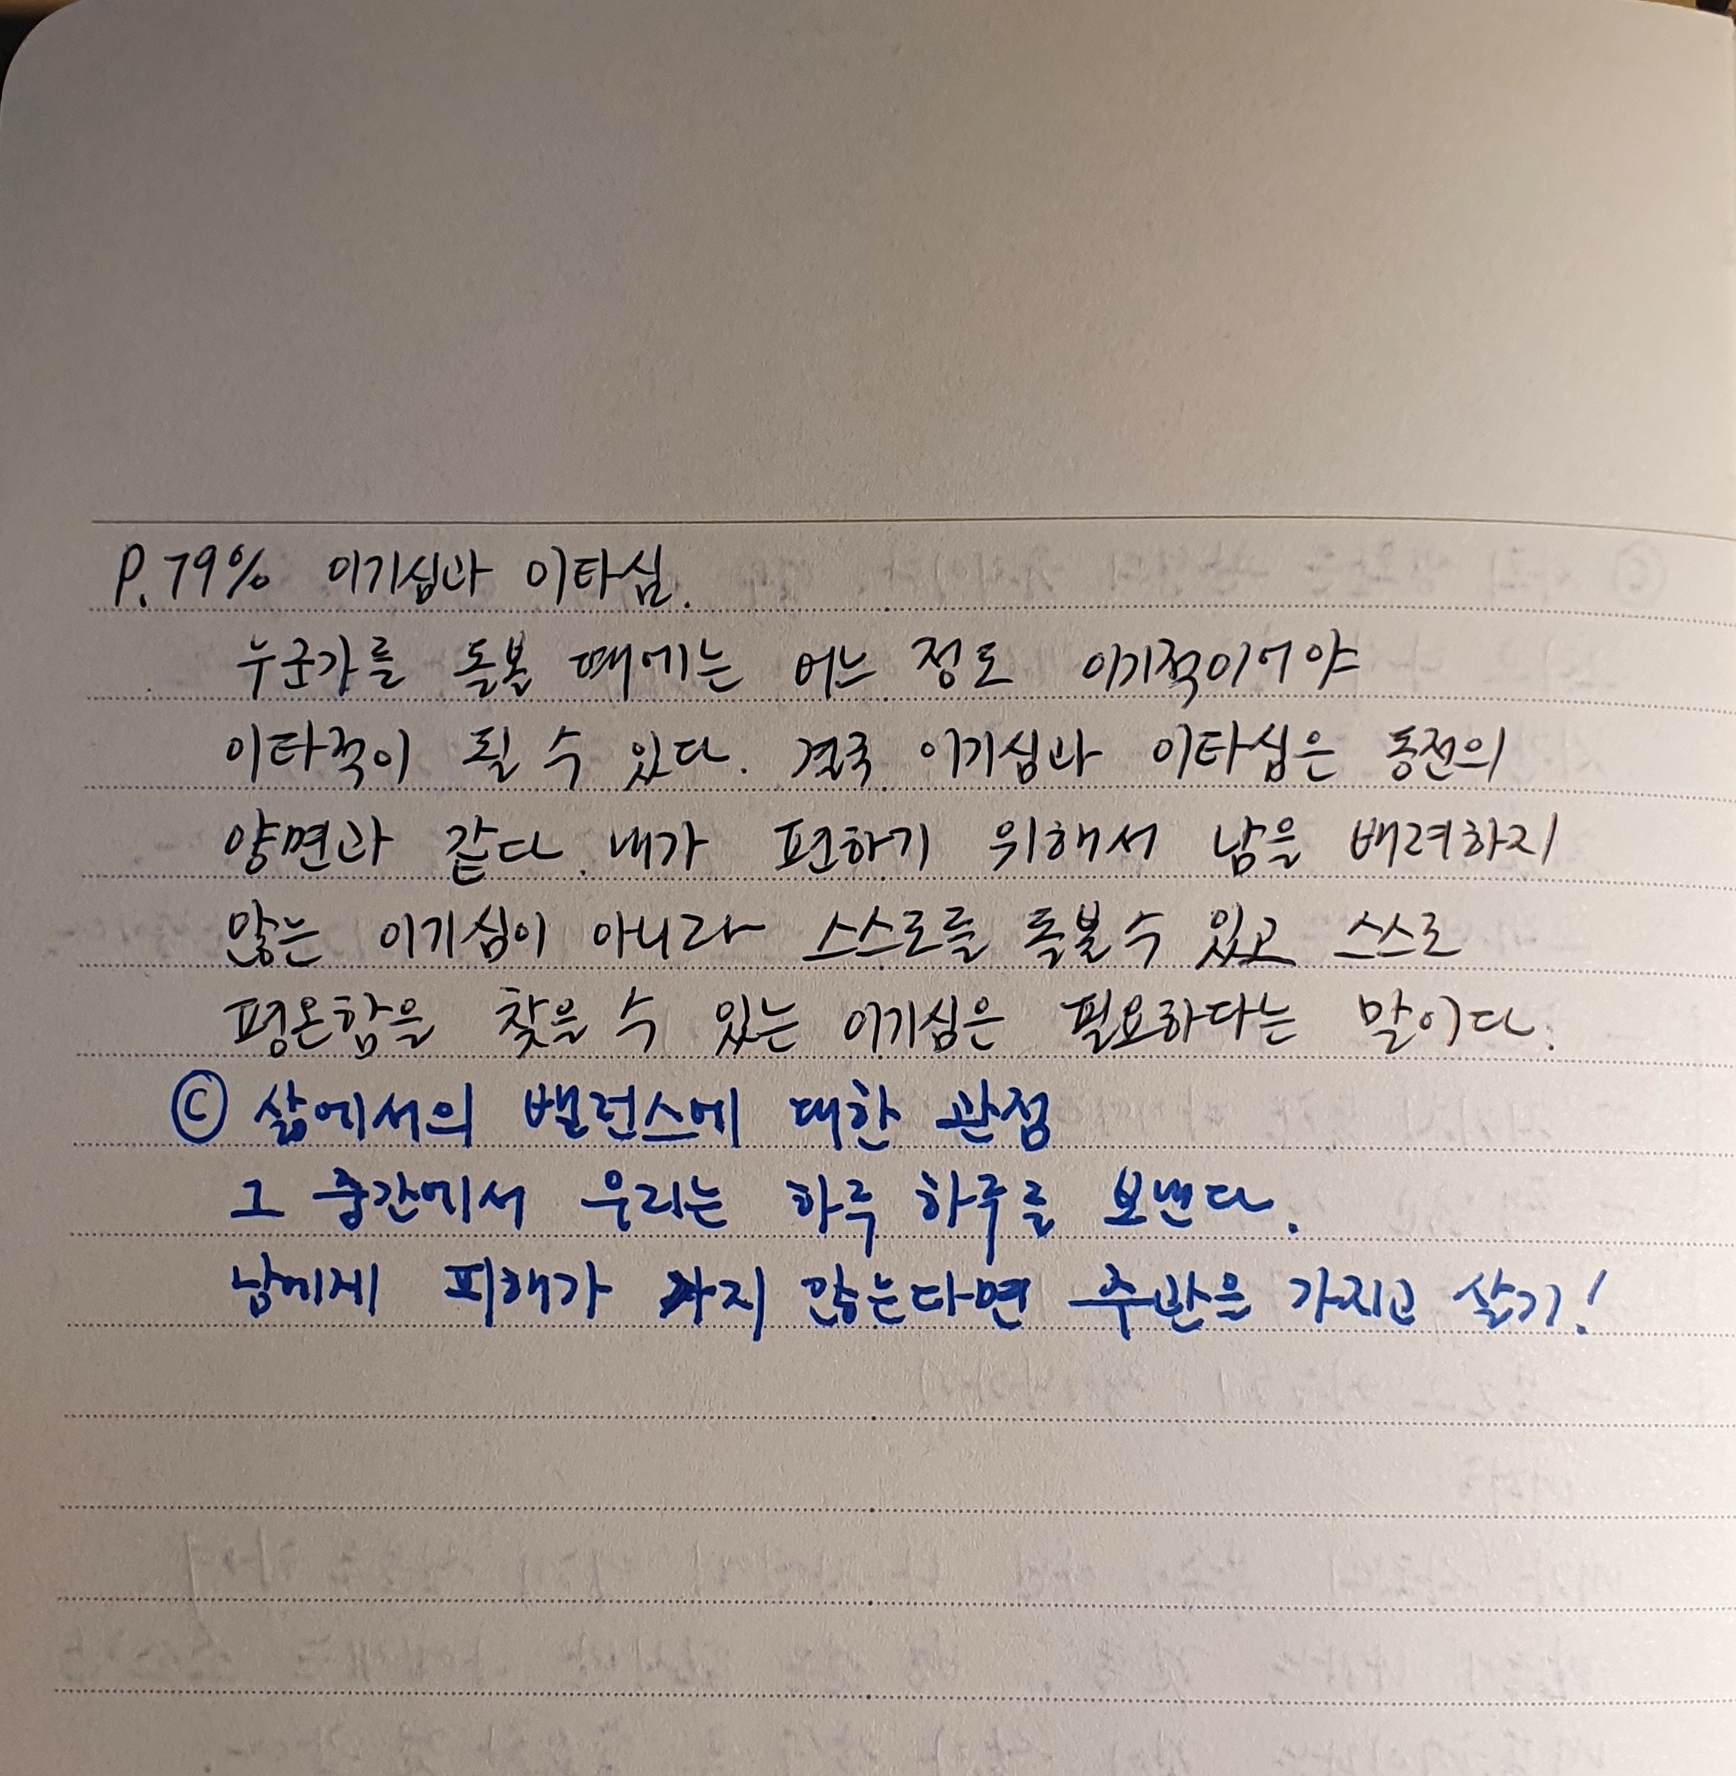 P.79% 이기심과 이타심.
누군가를 돌볼 때에는 어느 정도 이기적이어야
이타적이 될 수 있다. 결국 이기심과 이타심은 동전의
양면과 같다. 내가 편하기 위해서 남을 배려하지
않는 이기심이 아니라 스스로를 돌볼 수 있고 스스로
평온함을 찾을 수 있는 이기심은 필요하다는 말이다.
ⓒ 삶에서의 밸런스에 대한 관점
그 중간에서 우리는 하루 하루를 보낸다.
남에게 피해가 가지 않는다면 주관을 가지고 살기!